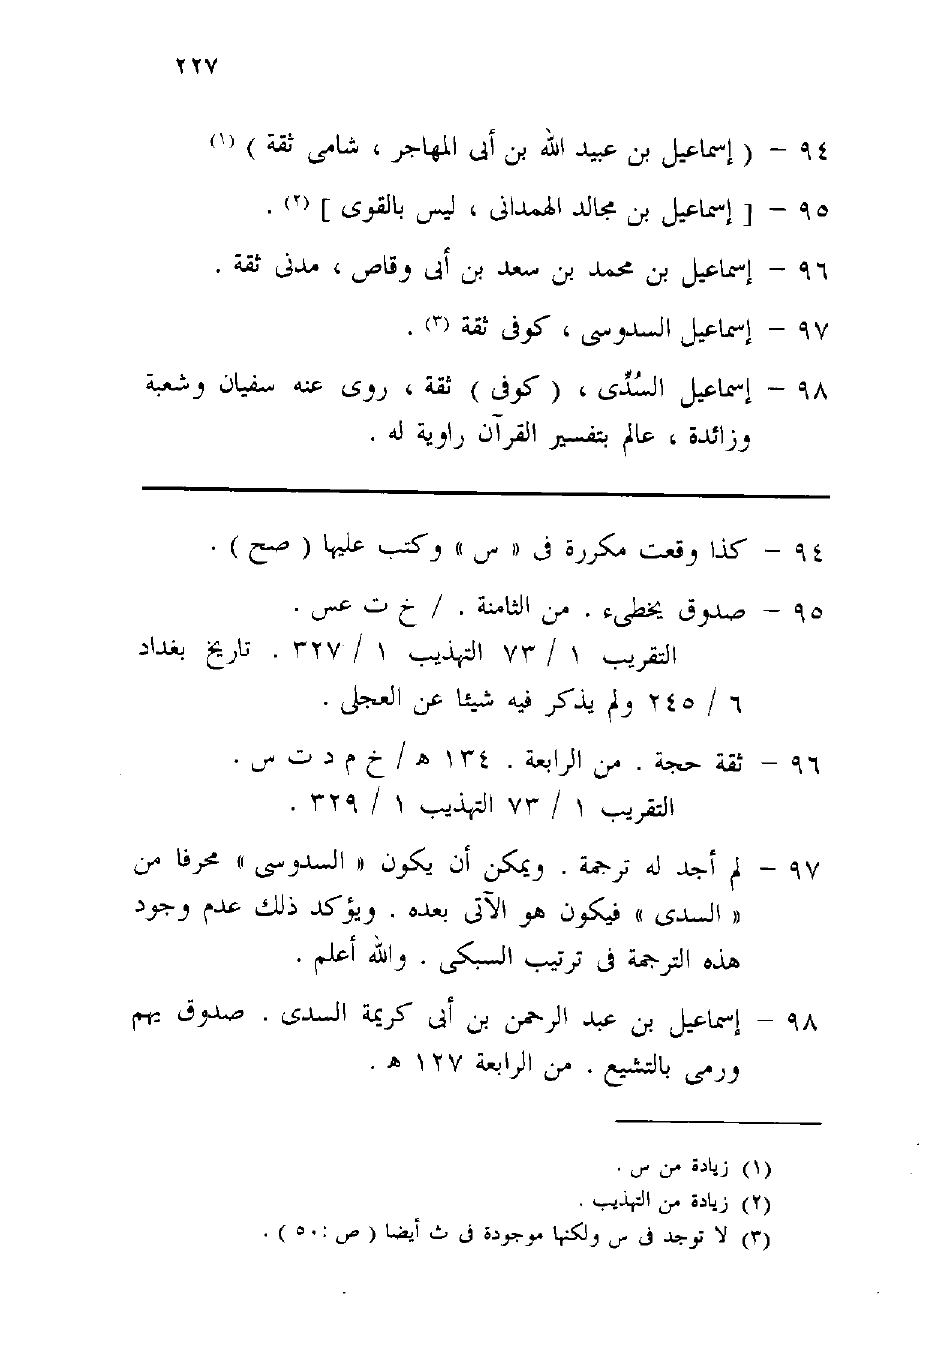 ٢٢٧
٩٤ – ( إسماعيل بن عبيد الله بن أبى المهاجر ، شامى ثقة ) (١)
٩٥ – [ إسماعيل بن مجالد الهمدانى ، ليس بالقوى ] (٢) .
٩٦ – إسماعيل بن محمد بن سعد بن أبى وقاص ، مدنى ثقة .
٩٧ – إسماعيل السدوسى ، كوفى ثقة (٣) .
٩٨ – إسماعيل السُدِّى ، ( كوفى ) ثقة ، روى عنه سفيان وشعبة
وزائدة ، عالم بتفسير القرآن راوية له .
٩٤ – كذا وقعت مكررة فى « س » وكتب عليها ( صح ) .
٩٥ – صدوق يخطىء . من الثامنة . / خ ت عس .
التقريب ١ / ٧٣ التهذيب ١ / ٣٢٧ . تاريخ بغداد
٦ / ٢٤٥ ولم يذكر فيه شيئا عن العجلى .
٩٦ – ثقة حجة . من الرابعة . ١٣٤ ه / خ م د ت س .
التقريب ١ / ٧٣ التهذيب ١ / ٣٢٩ .
٩٧ – لم أجد له ترجمة . ويمكن أن يكون « السدوسى » محرفا من
« السدى » فيكون هو الآتى بعده . ويؤكد ذلك عدم وجود
هذه الترجمة فى ترتيب السبكى . والله أعلم .
٩٨ – إسماعيل بن عبد الرحمن بن أبى كريمة السدى . صدوق يهم
ورمى بالتشيع . من الرابعة ١٢٧ ه .
(١) زيادة من س .
(٢) زيادة من التهذيب .
(٣) لا توجد فى س ولكنها موجودة فى ث أيضا ( ص : ٥٠ ) .